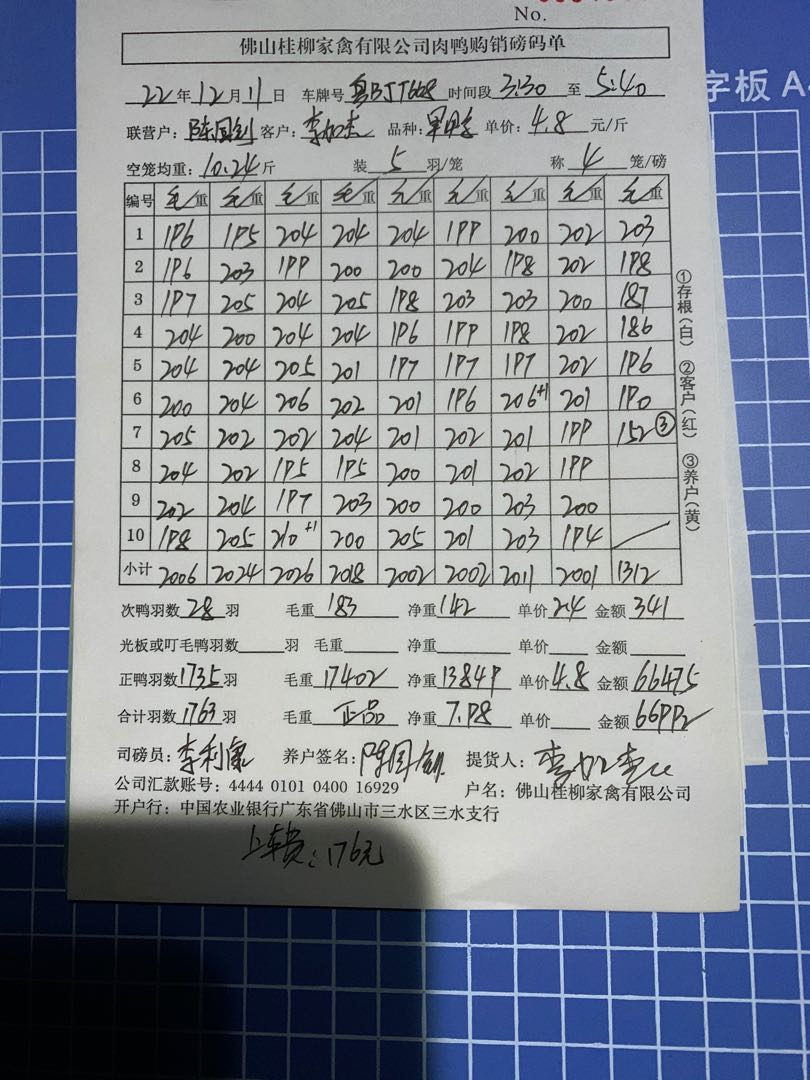 字板 A
No.
佛山桂柳家禽有限公司肉鸭购销磅码单
22 年 12 月 11 日 车牌号 时间段 3:30 至 5:40
联营户: 客户: 品种: 单价: 4.8 元/斤
空笼均重: 10.24 斤 装 5 羽/笼 称 4 笼/磅
编号 毛/重 毛/重 毛/重 毛/重 毛/重 毛/重 毛/重 毛/重 毛/重
1 196 195 204 204 204 199 200 202 203
2 196 203 199 200 200 204 198 202 198
3 197 205 204 205 198 203 203 200 187
4 204 200 204 204 196 199 198 202 186
5 204 204 205 201 197 197 197 202 196
6 200 204 206 202 201 196 206+1 201 190
7 205 202 202 204 201 202 201 199 152③
8 204 202 195 195 200 201 202 199
9 202 204 197 203 200 200 203 200
10 198 205 210+1 200 205 201 203 194
小计 2006 2024 2026 2018 2002 2002 2011 2001 1312
①存根(白) ②客户(红) ③养户(黄)
次鸭羽数 28 羽 毛重 183 净重 142 单价 2.4 金额 341
光板或叮毛鸭羽数 羽 毛重 净重 单价 金额
正鸭羽数 1735 羽 毛重 17402 净重 13849 单价 4.8 金额 66475
合计羽数 1763 羽 毛重 正品 净重 7.98 单价 金额 66992
司磅员: 李利康 养户签名: 提货人:
公司汇款账号: 4444 0101 0400 16929 户名: 佛山桂柳家禽有限公司
开户行: 中国农业银行广东省佛山市三水区三水支行
上车费: 176元